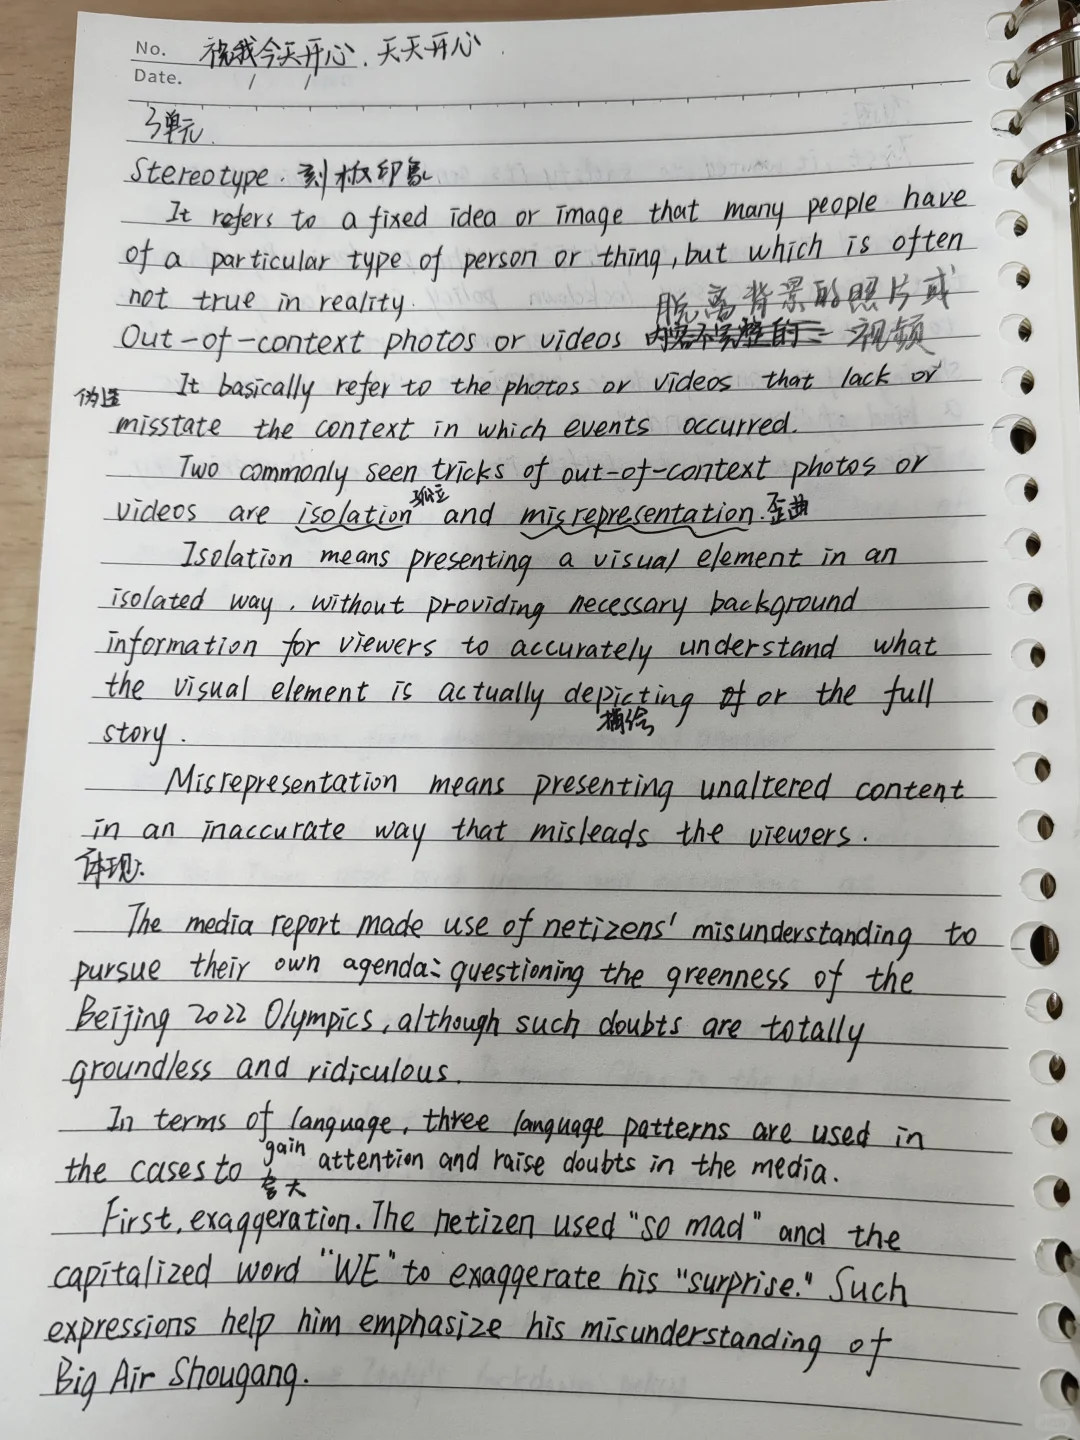 No. 祝我今天开心，天天开心
Date. / /
3单元.
Stereotype. 刻板印象
It refers to a fixed idea or image that many people have
of a particular type of person or thing, but which is often
not true in reality.
脱离背景的照片或
Out-of-context photos or videos 视频
It basically refer to the photos or videos that lack or
伪造
misstate the context in which events occurred.
Two commonly seen tricks of out-of-context photos or
孤立
videos are isolation and misrepresentation. 歪曲
Isolation means presenting a visual element in an
isolated way, without providing necessary background
information for viewers to accurately understand what
the visual element is actually depicting or the full
描绘
story.
Misrepresentation means presenting unaltered content
in an inaccurate way that misleads the viewers.
体现:
The media report made use of netizens' misunderstanding to
pursue their own agenda: questioning the greenness of the
Beijing 2022 Olympics, although such doubts are totally
groundless and ridiculous.
In terms of language, three language patterns are used in
the cases to gain attention and raise doubts in the media.
夸大
First, exaggeration. The netizen used "so mad" and the
capitalized word "WE" to exaggerate his "surprise." Such
expressions help him emphasize his misunderstanding of
Big Air Shougang.